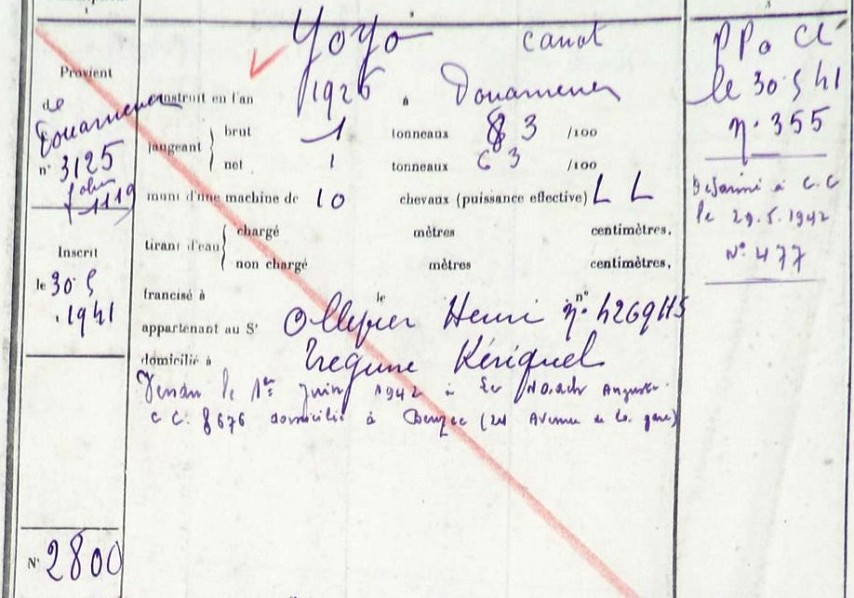 Yoyo canot
Provient
de
Douarnenez
n° 3125
1119
construit en l'an 1926 à Douarnenez
jaugeant
brut 1 tonneaux 83 /100
net 1 tonneaux 63 /100
muni d'une machine de 10 chevaux (puissance effective) L L
tirant d'eau
chargé mètres centimètres.
non chargé mètres centimètres.
Inscrit
le 30.5
.1941
francisé à le n°
appartenant au Sr Ollivier Henri n° 4269 HS
domicilié à Tregunc Kériquel
Vendu le 1er Juin 1942 à Le Auguste
C C. 8676 domicilié à Beuzec (24 Avenue de la gare)
N° 2800
PPo CC
le 30.5 41
n. 355
Désarmé à C.C
le 29.5.1942
N° 477